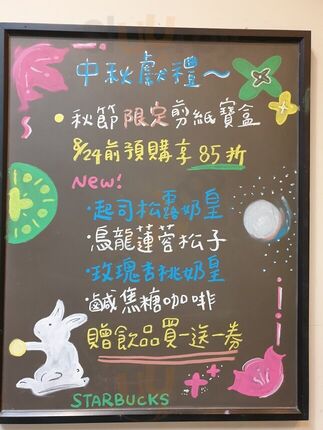 中秋獻禮～
・秋節限定剪紙寶盒
8/24前預購享85折
New!
・起司松露奶皇
・烏龍蓮蓉松子
・玫瑰杏桃奶皇
・鹹焦糖咖啡
贈飲品買一送一券
STARBUCKS